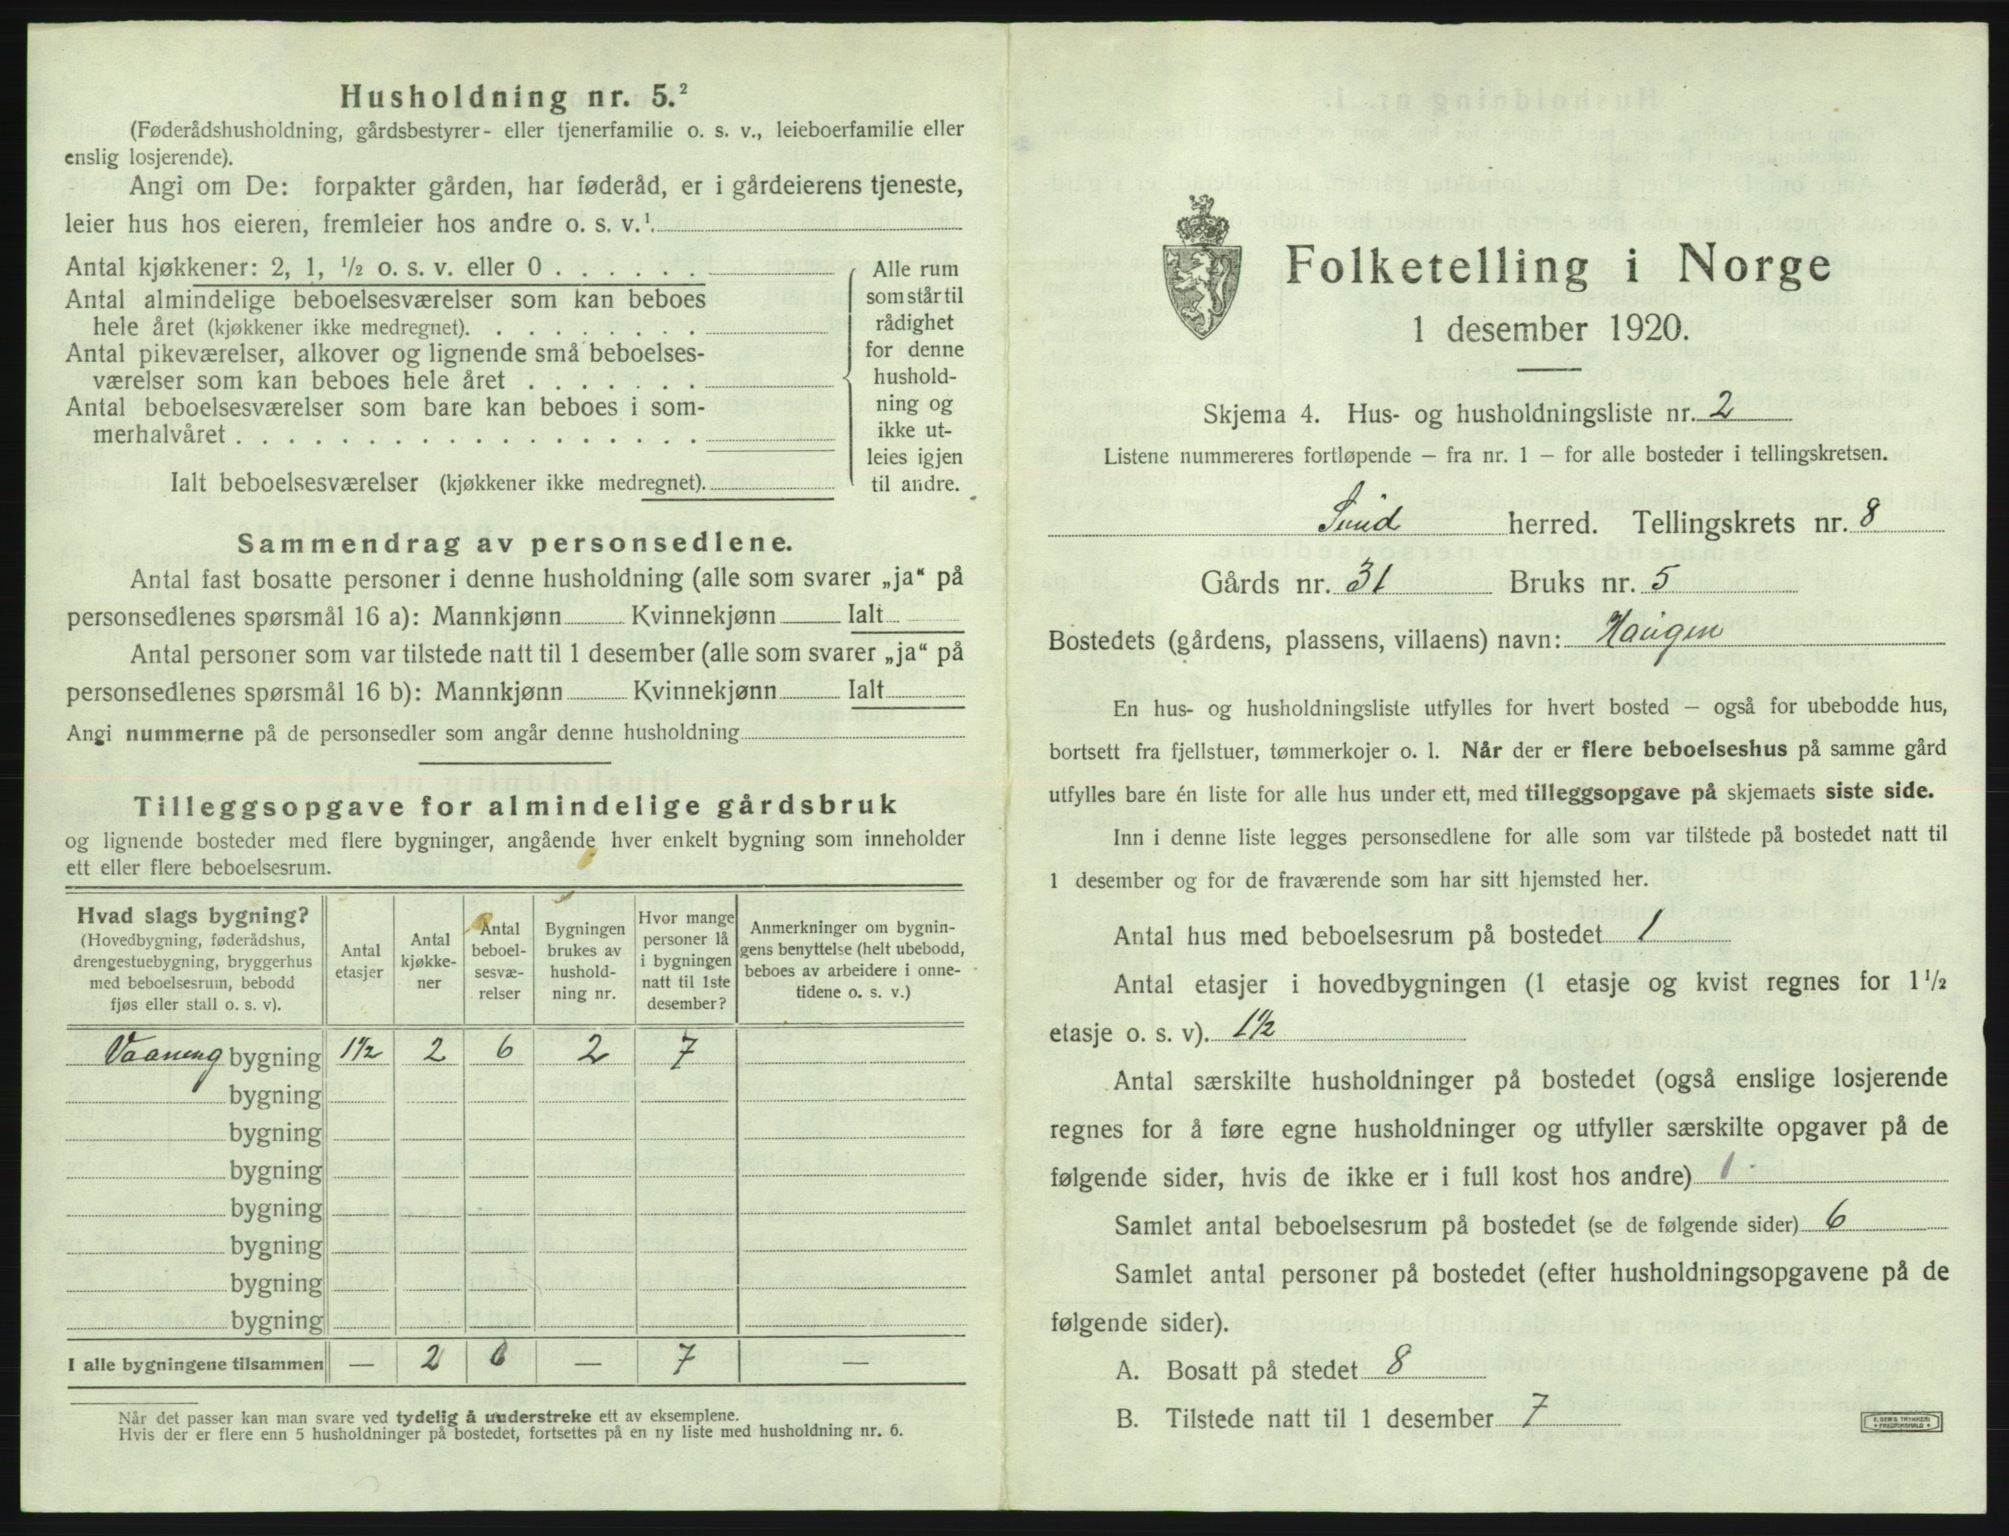 Husholdning nr. 5.²
(Føderådshusholdning, gårdsbestyrer- eller tjenerfamilie o. s. v., leieboerfamilie eller
enslig losjerende).
Angi om De: forpakter gården, har føderåd, er i gårdeierens tjeneste,
leier hus hos eieren, fremleier hos andre o. s. v.¹
Antal kjøkkener: 2, 1, ½ o. s. v. eller 0 . . . . . .
Antal almindelige beboelsesværelser som kan beboes
hele året (kjøkkener ikke medregnet). . . . . . . . .
Antal pikeværelser, alkover og lignende små beboelses-
værelser som kan beboes hele året . . . . . . .
Antal beboelsesværelser som bare kan beboes i som-
merhalvåret . . . . . . . . . . . . . . . . . .
Ialt beboelsesværelser (kjøkkener ikke medregnet).
Alle rum
som står til
rådighet
for denne
hushold-
ning og
ikke ut-
leies igjen
til andre.
Sammendrag av personsedlene.
Antal fast bosatte personer i denne husholdning (alle som svarer „ja“ på
personsedlenes spørsmål 16 a): Mannkjønn Kvinnekjønn Ialt
Antal personer som var tilstede natt til 1 desember (alle som svarer „ja“ på
personsedlenes spørsmål 16 b): Mannkjønn Kvinnekjønn Ialt
Angi nummerne på de personsedler som angår denne husholdning
Tilleggsopgave for almindelige gårdsbruk
og lignende bosteder med flere bygninger, angående hver enkelt bygning som inneholder
ett eller flere beboelsesrum.
Hvad slags bygning?
(Hovedbygning, føderådshus,
drengestuebygning, bryggerhus
med beboelsesrum, bebodd
fjøs eller stall o. s. v).
Antal
etasjer
Antal
kjøkke-
ner
Antal
beboel-
sesvæ-
relser
Bygningen
brukes av
hushold-
ning nr.
Hvor mange
personer lå
i bygningen
natt til 1ste
desember?
Anmerkninger om bygnin-
gens benyttelse (helt ubebodd,
beboes av arbeidere i onne-
tidene o. s. v.)
Vaaning bygning 1½ 2 6 2 7
bygning
bygning
bygning
bygning
bygning
bygning
bygning
I alle bygningene tilsammen — 2 6 — 7 —
Når det passer kan man svare ved tydelig å understreke ett av eksemplene.
Hvis der er flere enn 5 husholdninger på bostedet, fortsettes på en ny liste med husholdning nr. 6.
Folketelling i Norge
1 desember 1920.
Skjema 4. Hus- og husholdningsliste nr. 2
Listene nummereres fortløpende – fra nr. 1 – for alle bosteder i tellingskretsen.
Sund herred. Tellingskrets nr. 8
Gårds nr. 31 Bruks nr. 5
Bostedets (gårdens, plassens, villaens) navn: Haugen
En hus- og husholdningsliste utfylles for hvert bosted – også for ubebodde hus,
bortsett fra fjellstuer, tømmerkojer o. l. Når der er flere beboelseshus på samme gård
utfylles bare én liste for alle hus under ett, med tilleggsopgave på skjemaets siste side.
Inn i denne liste legges personsedlene for alle som var tilstede på bostedet natt til
1 desember og for de fraværende som har sitt hjemsted her.
Antal hus med beboelsesrum på bostedet 1
Antal etasjer i hovedbygningen (1 etasje og kvist regnes for 1½
etasje o. s. v). 1½
Antal særskilte husholdninger på bostedet (også enslige losjerende
regnes for å føre egne husholdninger og utfyller særskilte opgaver på de
følgende sider, hvis de ikke er i full kost hos andre) 1
Samlet antal beboelsesrum på bostedet (se de følgende sider) 6
Samlet antal personer på bostedet (efter husholdningsopgavene på de
følgende sider).
A. Bosatt på stedet 8
B. Tilstede natt til 1 desember 7